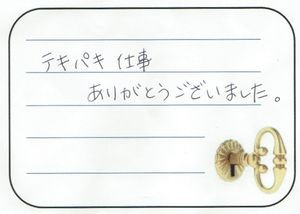 テキパキ 仕事
ありがとうございました。